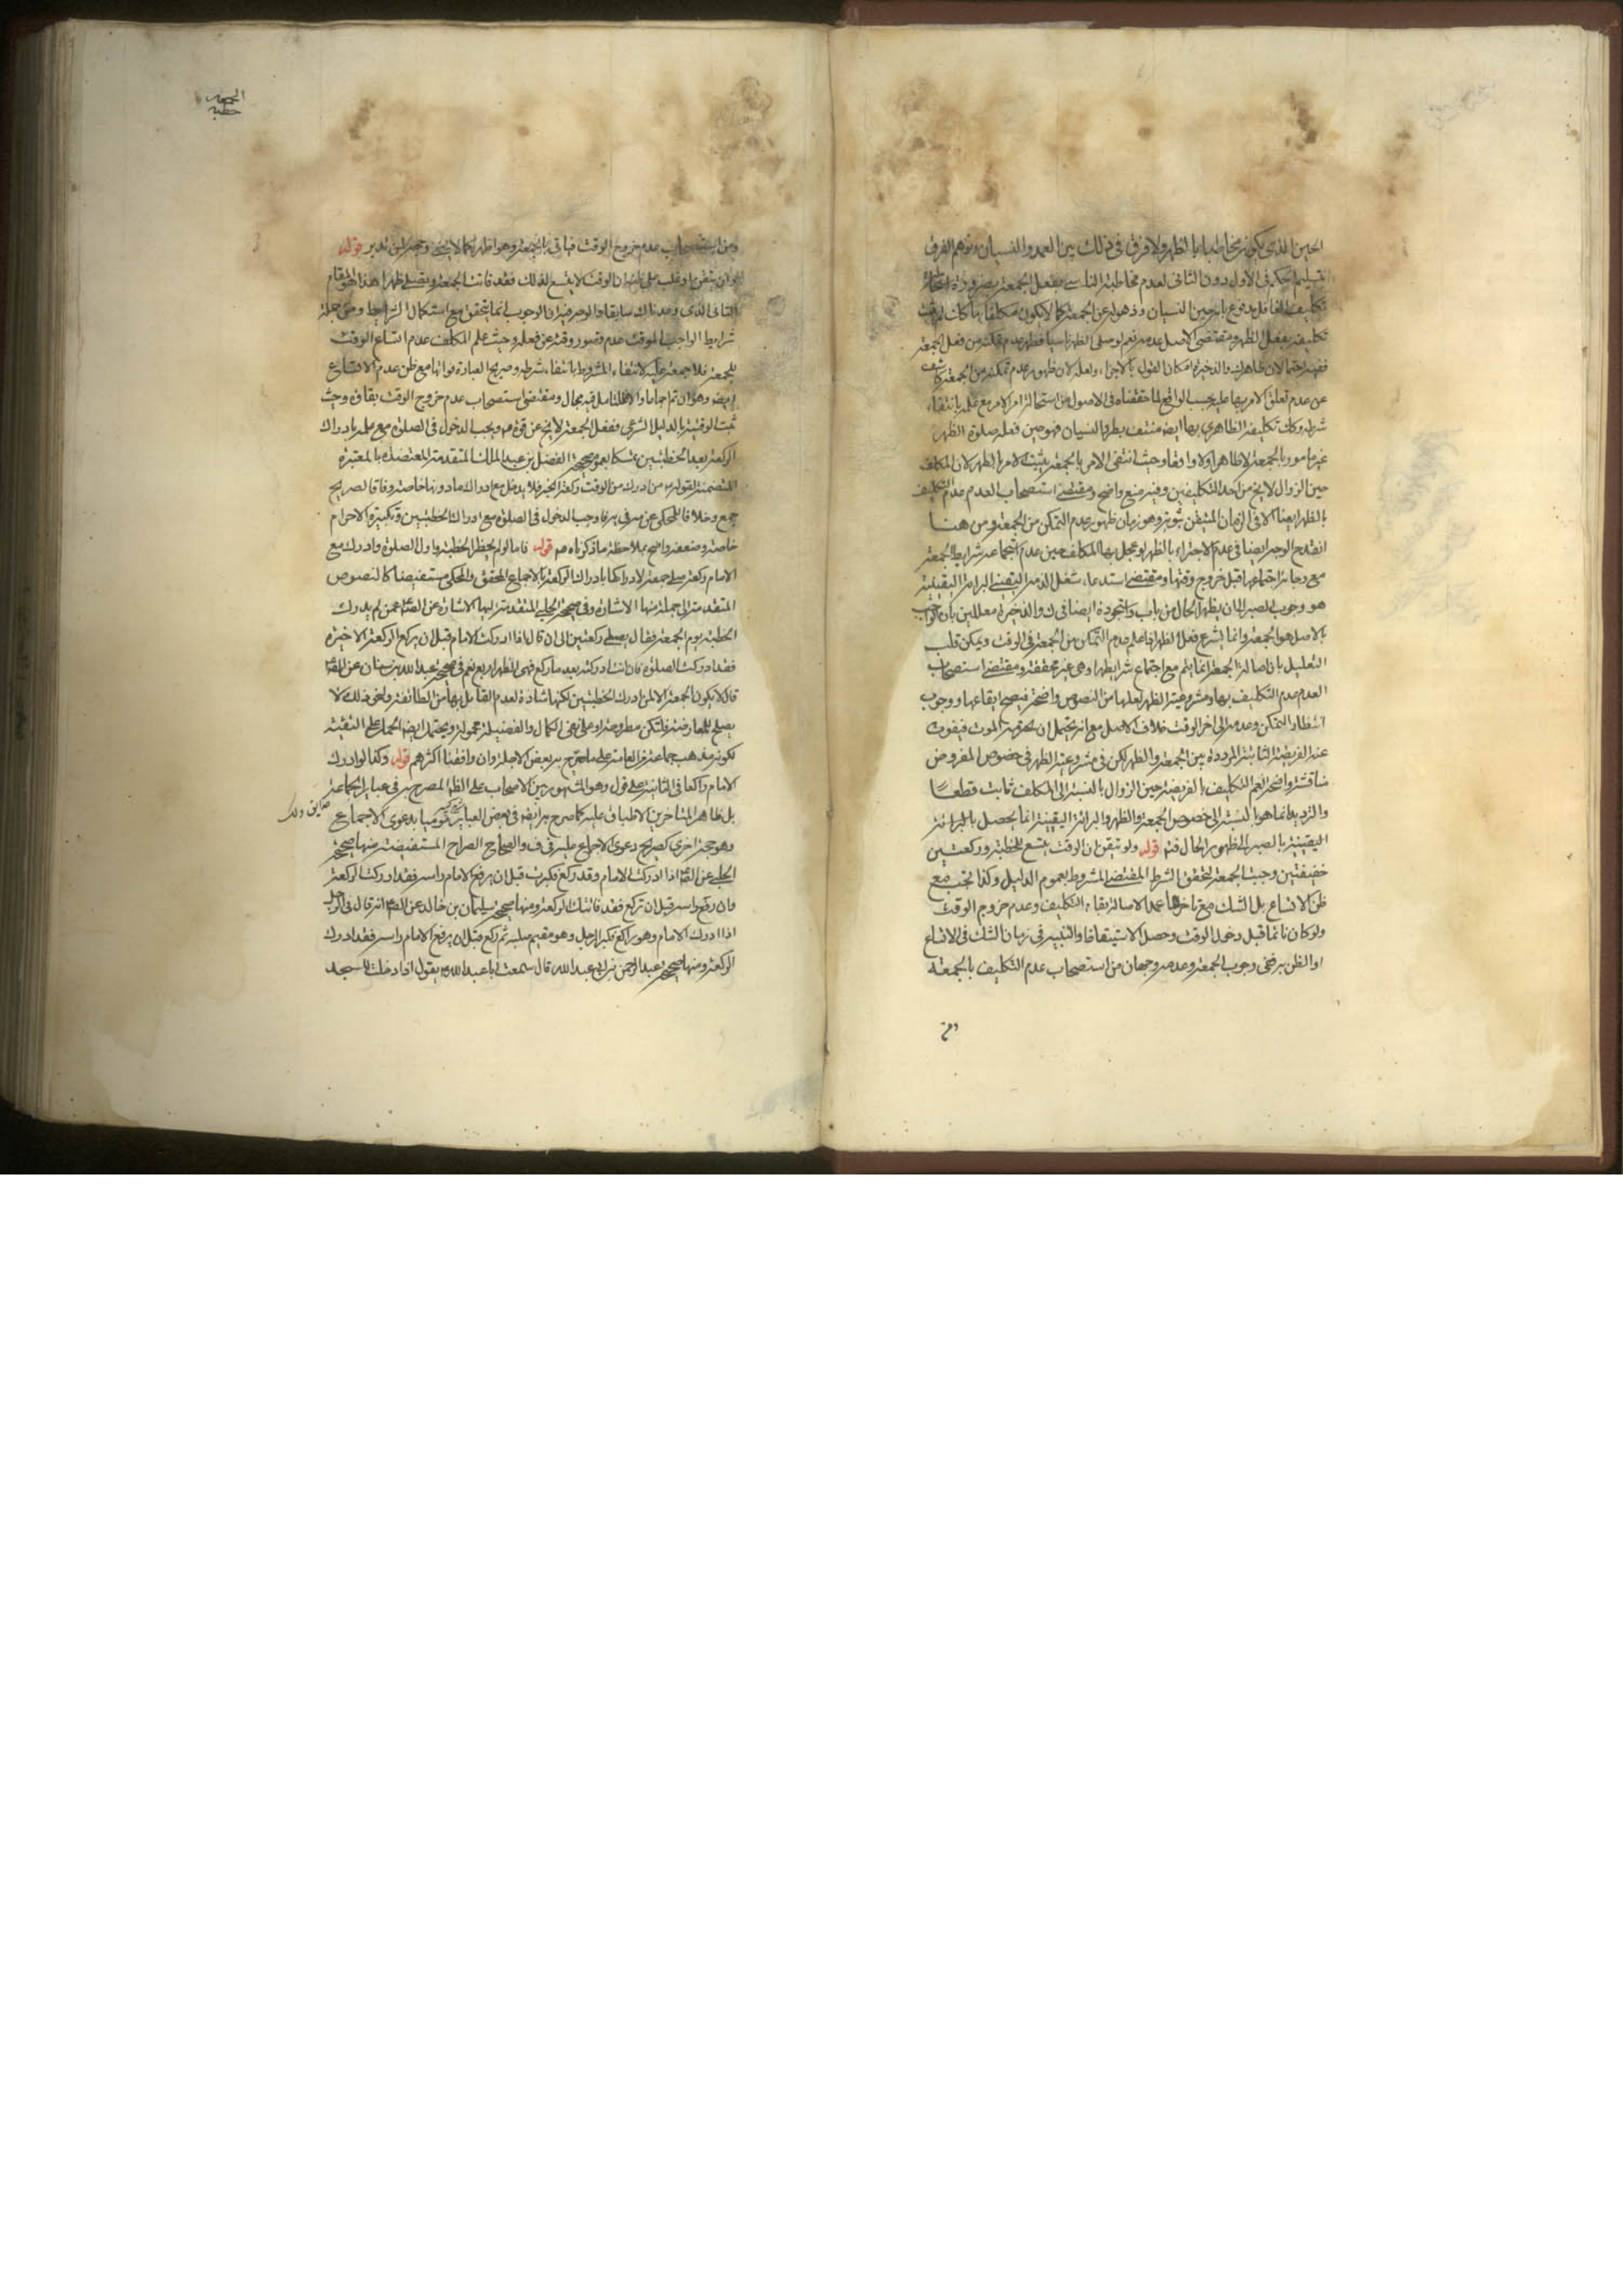 الحين الذى يكون مخاطبا بالظهر ولا فرق فى ذلك بين العمد والنسيان وتوهم الفرق
بتسليم الحكم فى الاول دون الثانى لعدم مخاطبة الناسى بفعل الجمعة بضرورة استحالة
تكليف الغافل مدفوع بانه حين النسيان وذهوله عن الجمعة كما لا يكون مكلفا بها كان لم يثبت
تكليفه بفعل الظهر ومقتضى الاصل عدمه نعم لو صلى الظهر ناسيا فظهر عدم تمكنه من فعل الجمعة
ففيه احتمالان ظاهرك والذخيرة امكان القول بالاجزاء ولعله لان ظهور عدم تمكنه من الجمعة كاشف
عن عدم تعلق الامر بها عليه بحسب الواقع لما حققناه فى الاصول من استحالة امر الامر مع علمه بانتفاء
شرطه وكان تكليفه الظاهرى بها ايضا منتف بطرد النسيان فهو حين فعله صلوة الظهر
غير مامور بالجمعة لا ظاهرا ولا واقعا وحيث انتفى الامر بالجمعة يثبت الامر بالظهر لان المكلف
حين الزوال لا يخ من احد التكليفين وفيه منع واضح ومقتضى استصحاب العدم عدم التكليف
بالظهر ايضا الا فى الزمان المتيقن ثبوته وهو زمان ظهور عدم التمكن من الجمعة ومن هنا
انقدح الوجه ايضا فى عدم الاجتزاء بالظهر لو عجل بها المكلف حين عدم اجتماعه شرايط الجمعة
مع رجائه اجتماعها قبل خروج وقتها ومقتضى استدعاء شغل الذمة اليقينى البرائة اليقينية
هو وجوب الصبر الى ان يظهر الحال من باب واستجوده ايضا فى ك والذخيرة معللين بان الواجب
بالاصل هو الجمعة وانما يشرع فعل الظهر اذا علم عدم التمكن من الجمعة فى الوقت ويمكن قلب
التعليل بان اصالة الجمعة انما يتم مع اجتماع شرايطها وهى غير محققة ومقتضى استصحاب
العدم عدم التكليف بها ومشروعية الظهر لعلها من النصوص واضحة فيصح ايقاعها ووجوب
انتظار التمكن وعدمه الى اخر الوقت خلاف الاصل مع انه يحتمل ان يحرقه الموت فيفوت
عنه الفريضة الثابتة المرددة بين الجمعة والظهر لكن فى مشروعية الظهر فى خصوص المفروض
مناقشة واضحة نعم التكليف بالفريضة حين الزوال بالنسبة الى المكلف ثابت قطعا
والترديد انما هو بالنسبة الى خصوص الجمعة والظهر والبرائة اليقينية انما يحصل بالبرائة
اليقينية بالصبر الى ظهور الحال فتم قوله ولو تيقن ان الوقت يتسع للخطبة وركعتين
خفيفتين وجبت الجمعة لتحقق الشرط المقتضى المشروط بعموم الدليل وكذا تجب مع
ظن الاتساع بل الشك مع تاخرها عملا لاصالة بقاء التكليف وعدم خروج الوقت
ولو كان نائما قبل دخول الوقت وحصل الاستيقاظ والتنبيه فى زمان الشك فى الاتساع
او الظن به ففى وجوب الجمعة وعدمه وجهان من استصحاب عدم التكليف بالجمعة
ومن
الجمعه
خطبه
ومن استصحاب عدم خروج الوقت فياتى بالجمعة وهو اظهر كما لا يخفى وجهه لمن تدبر قوله
وان تيقن او غلب على ظنه ان الوقت لا يتسع لذلك فقد فاتت الجمعة ويصلى ظهرا هذا هو المقام
الثانى الذى وعدناك سابقا والوجه فيه ان الوجوب انما يتحقق مع استكمال الشرايط ومن جملة
شرايط الواجب الموقت عدم قصور وقته عن فعله وحيث علم المكلف عدم اتساع الوقت
للجمعة فلا جمعة عليه لانتفاء المشروط بانتفاء شرطه وصريح العبارة فواتها مع ظن عدم الاتساع
ايضا وهو ان تم اجماعا والا فللتامل فيه مجال ومقتضى استصحاب عدم خروج الوقت بقاؤه وحيث
ثبت الوقتية بالدليل الشرعى ففعل الجمعة لا يخ عن قوة مه ويجب الدخول فى الصلوة مع علمه بادراك
الركعة بعد الخطبتين تمسكا بعموم صحيحة الفضل بن عبد الملك المتقدمة المعتضدة بالمعتبرة
المتضمنة لقوله من ادرك من الوقت ركعة الخبر فلا يدخل مع ادراك ما دونها خاصة وفاقا لصريح
جمع وخلافا للمحكى عن صرفى به فاوجب الدخول فى الصلوة مع ادراك الخطبتين وتكبيرة الاحرام
خاصة وضعفه واضح بملاحظة ما ذكرناه مه قوله فاما لو لم يحضر الخطبة واول الصلوة وادرك مع
الامام ركعة صلى جمعة لادراكها بادراك الركعة بالاجماع المحقق والمحكى مستفيضا كالنصوص
المتقدمة الى جملة منها الاشارة وفى صحيحة الحلبى المتقدمة اليها الاشارة عن الصم عمن لم يدرك
الخطبة يوم الجمعة فقال يصلى ركعتين الى ان قال اذا ادركت الامام قبل ان يركع الركعة الاخيرة
فقد ادركت الصلوة فان انت ادركته بعد ما ركع فهى الظهر اربع نعم فى صحيحة عبد الله بن سنان عن الصم
قال لا يكون الجمعة الا لمن ادرك الخطبتين لكنها شاذة لعدم القائل بها من الطائفة ونحو ذلك لا
يصلح للمعارضة فلتكن مطروحة او على نفى الكمال والفضيلة محمولة ويحتمل ايضا الحمل على التقية
لكونه مذهب جماعة من العامة على ما صرح به بعض الاجلة وان وافقنا اكثرهم قوله وكذا لو ادرك
الامام راكعا فى الثانية على قول وهو المشهور بين الاصحاب على الظ المصرح به فى عبايرة الجماعة
بل ظاهر المتاخرين الاطباق عليه كما صرح به ايضا فى بعض العباير مومیا بدعوى الاجماع
وهو حجة اخرى كصريح دعوى الاجماع عليه فى ف والصحاح الصراح المستفيضة منها صحيحة
الحلبى عن الصم اذا ادركت الامام وقد ركع فكبرت قبل ان يرفع الامام راسه فقد ادركت الركعة
وان رفع راسه قبل ان تركع فقد فاتتك الركعة ومنها صحيحة سليمان بن خالد عن الصم انه قال فى الرجل
اذا ادرك الامام وهو راكع فكبر الرجل وهو مقيم صلبه ثم ركع قبل ان يرفع الامام راسه فقد ادرك
الركعة ومنها صحيحة عبد الرحمن بن ابى عبد الله قال سمعت ابا عبد الله يقول اذا دخلت المسجد